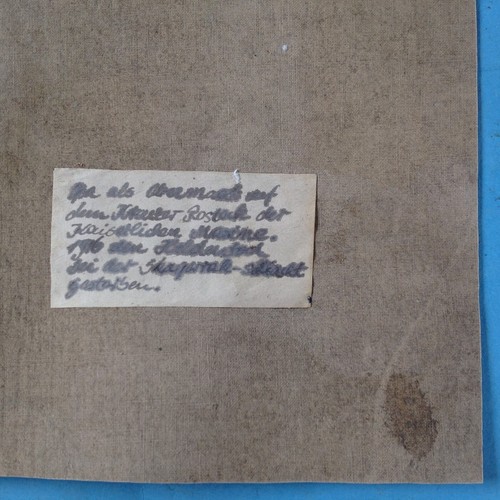 Opa als Obermaat auf
dem Kreuzer Rostock der
Kaiserlichen Marine.
1916 den Heldentod
bei der Skagerrak-Schlacht
gestorben.